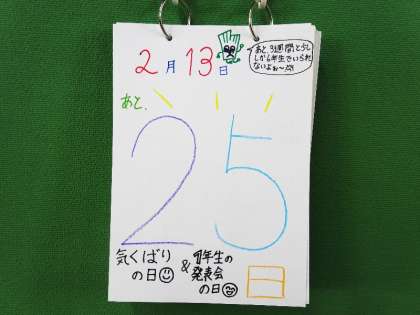 2月13日
あと、3週間と少
ししか6年生でいられ
ないよぉ〜
あと、
25
日
気くばり
の日
&
1年生の
発表会
の日